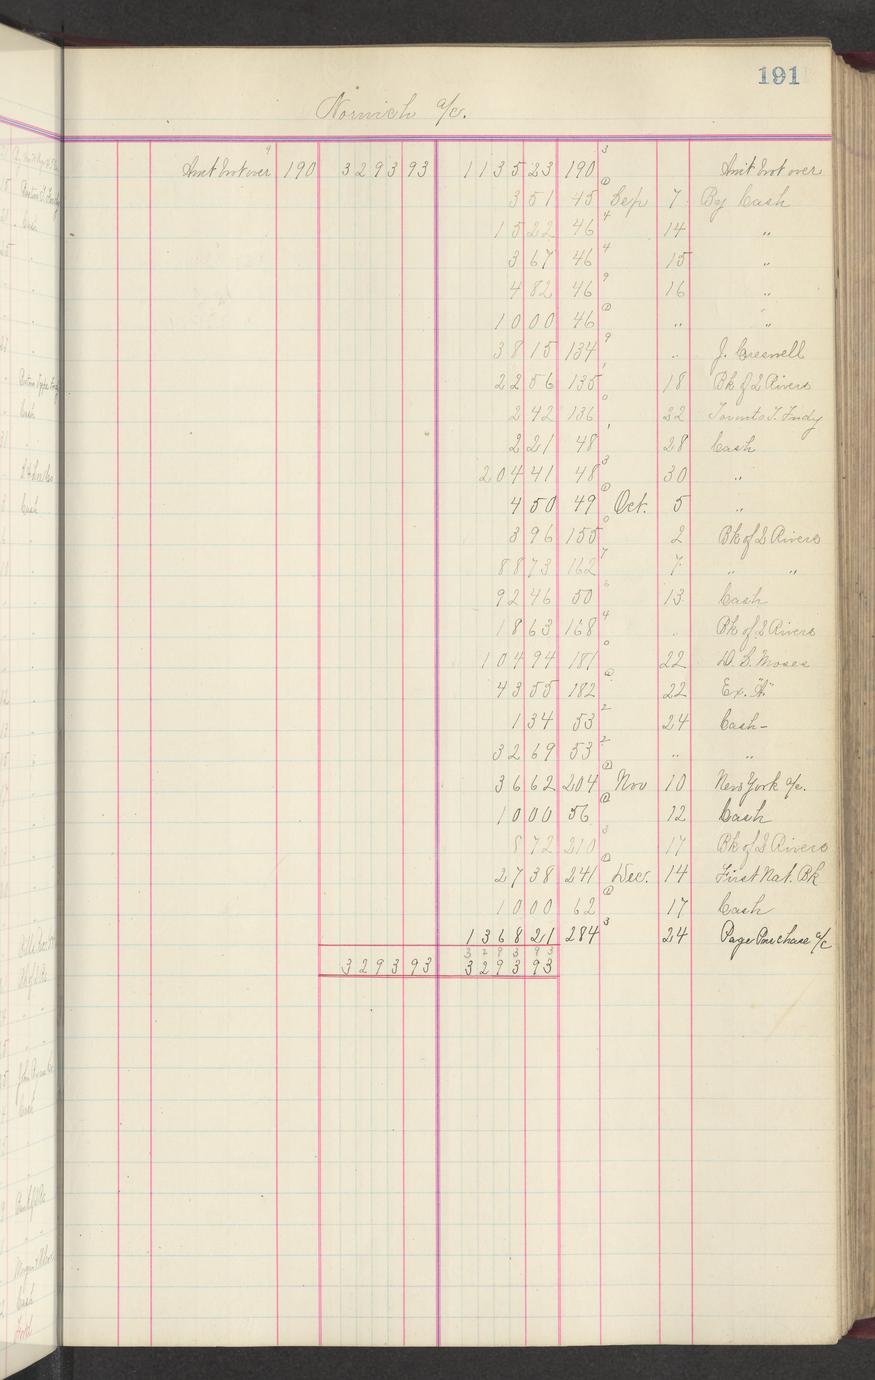 191
Norwich a/c.
Amt brot over 190 3293 93 1135 23 190 Amt brot over
3 51 45 Sep 7 By Cash
15 22 46 14 "
3 67 46 15 "
4 82 46 16 "
10 00 46 " "
38 15 134 " J. Creswell
22 56 135 18 Bk of 2 Rivers
2 42 136 22 Toronto T. Fndy
2 21 48 28 Cash
204 41 48 30 "
4 50 49 Oct. 5 "
3 96 155 2 Bk of 2 Rivers
88 73 162 7 " "
92 46 50 13 Cash
18 63 168 " Bk of 2 Rivers
104 94 181 22 D. B. Moses
43 55 182 22 Ex. "A"
1 34 53 24 Cash-
32 69 53 " "
36 62 204 Nov 10 New York a/c.
10 00 56 12 Cash
8 72 210 17 Bk of 2 Rivers
27 38 241 Dec. 14 First Nat. Bk
10 00 62 17 Cash
1368 21 284 24 Page Purchase a/c
3293 93
3293 93 3293 93